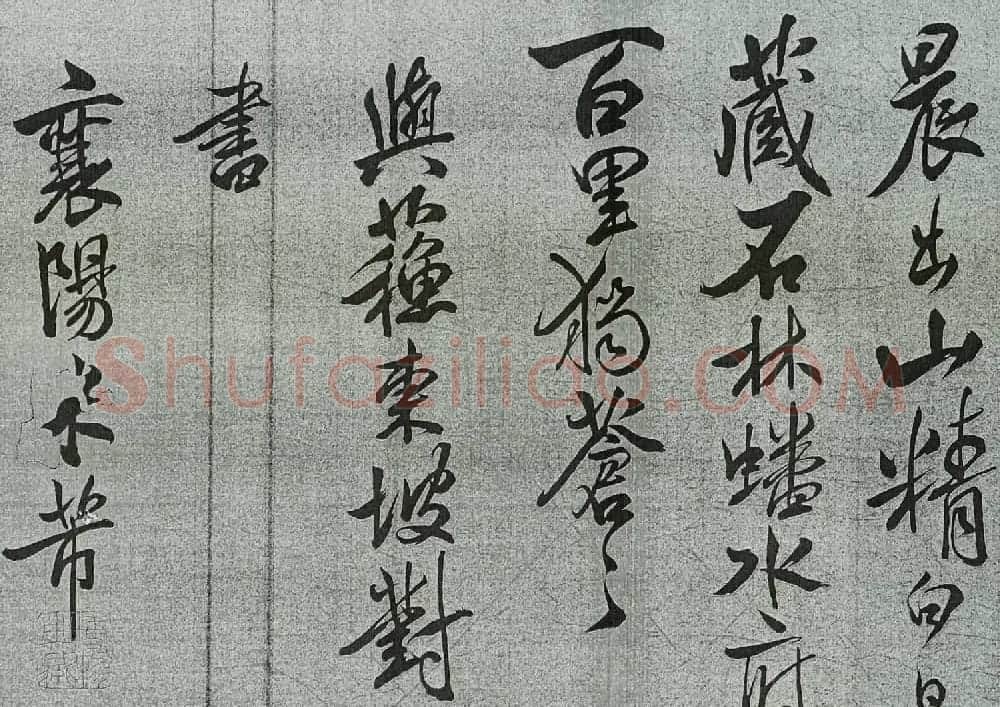 晨出山精白日
藏石林蟠水府
百里獨蒼〻
與蘇東坡對
書
襄陽米芾
Shufaziliao.COM